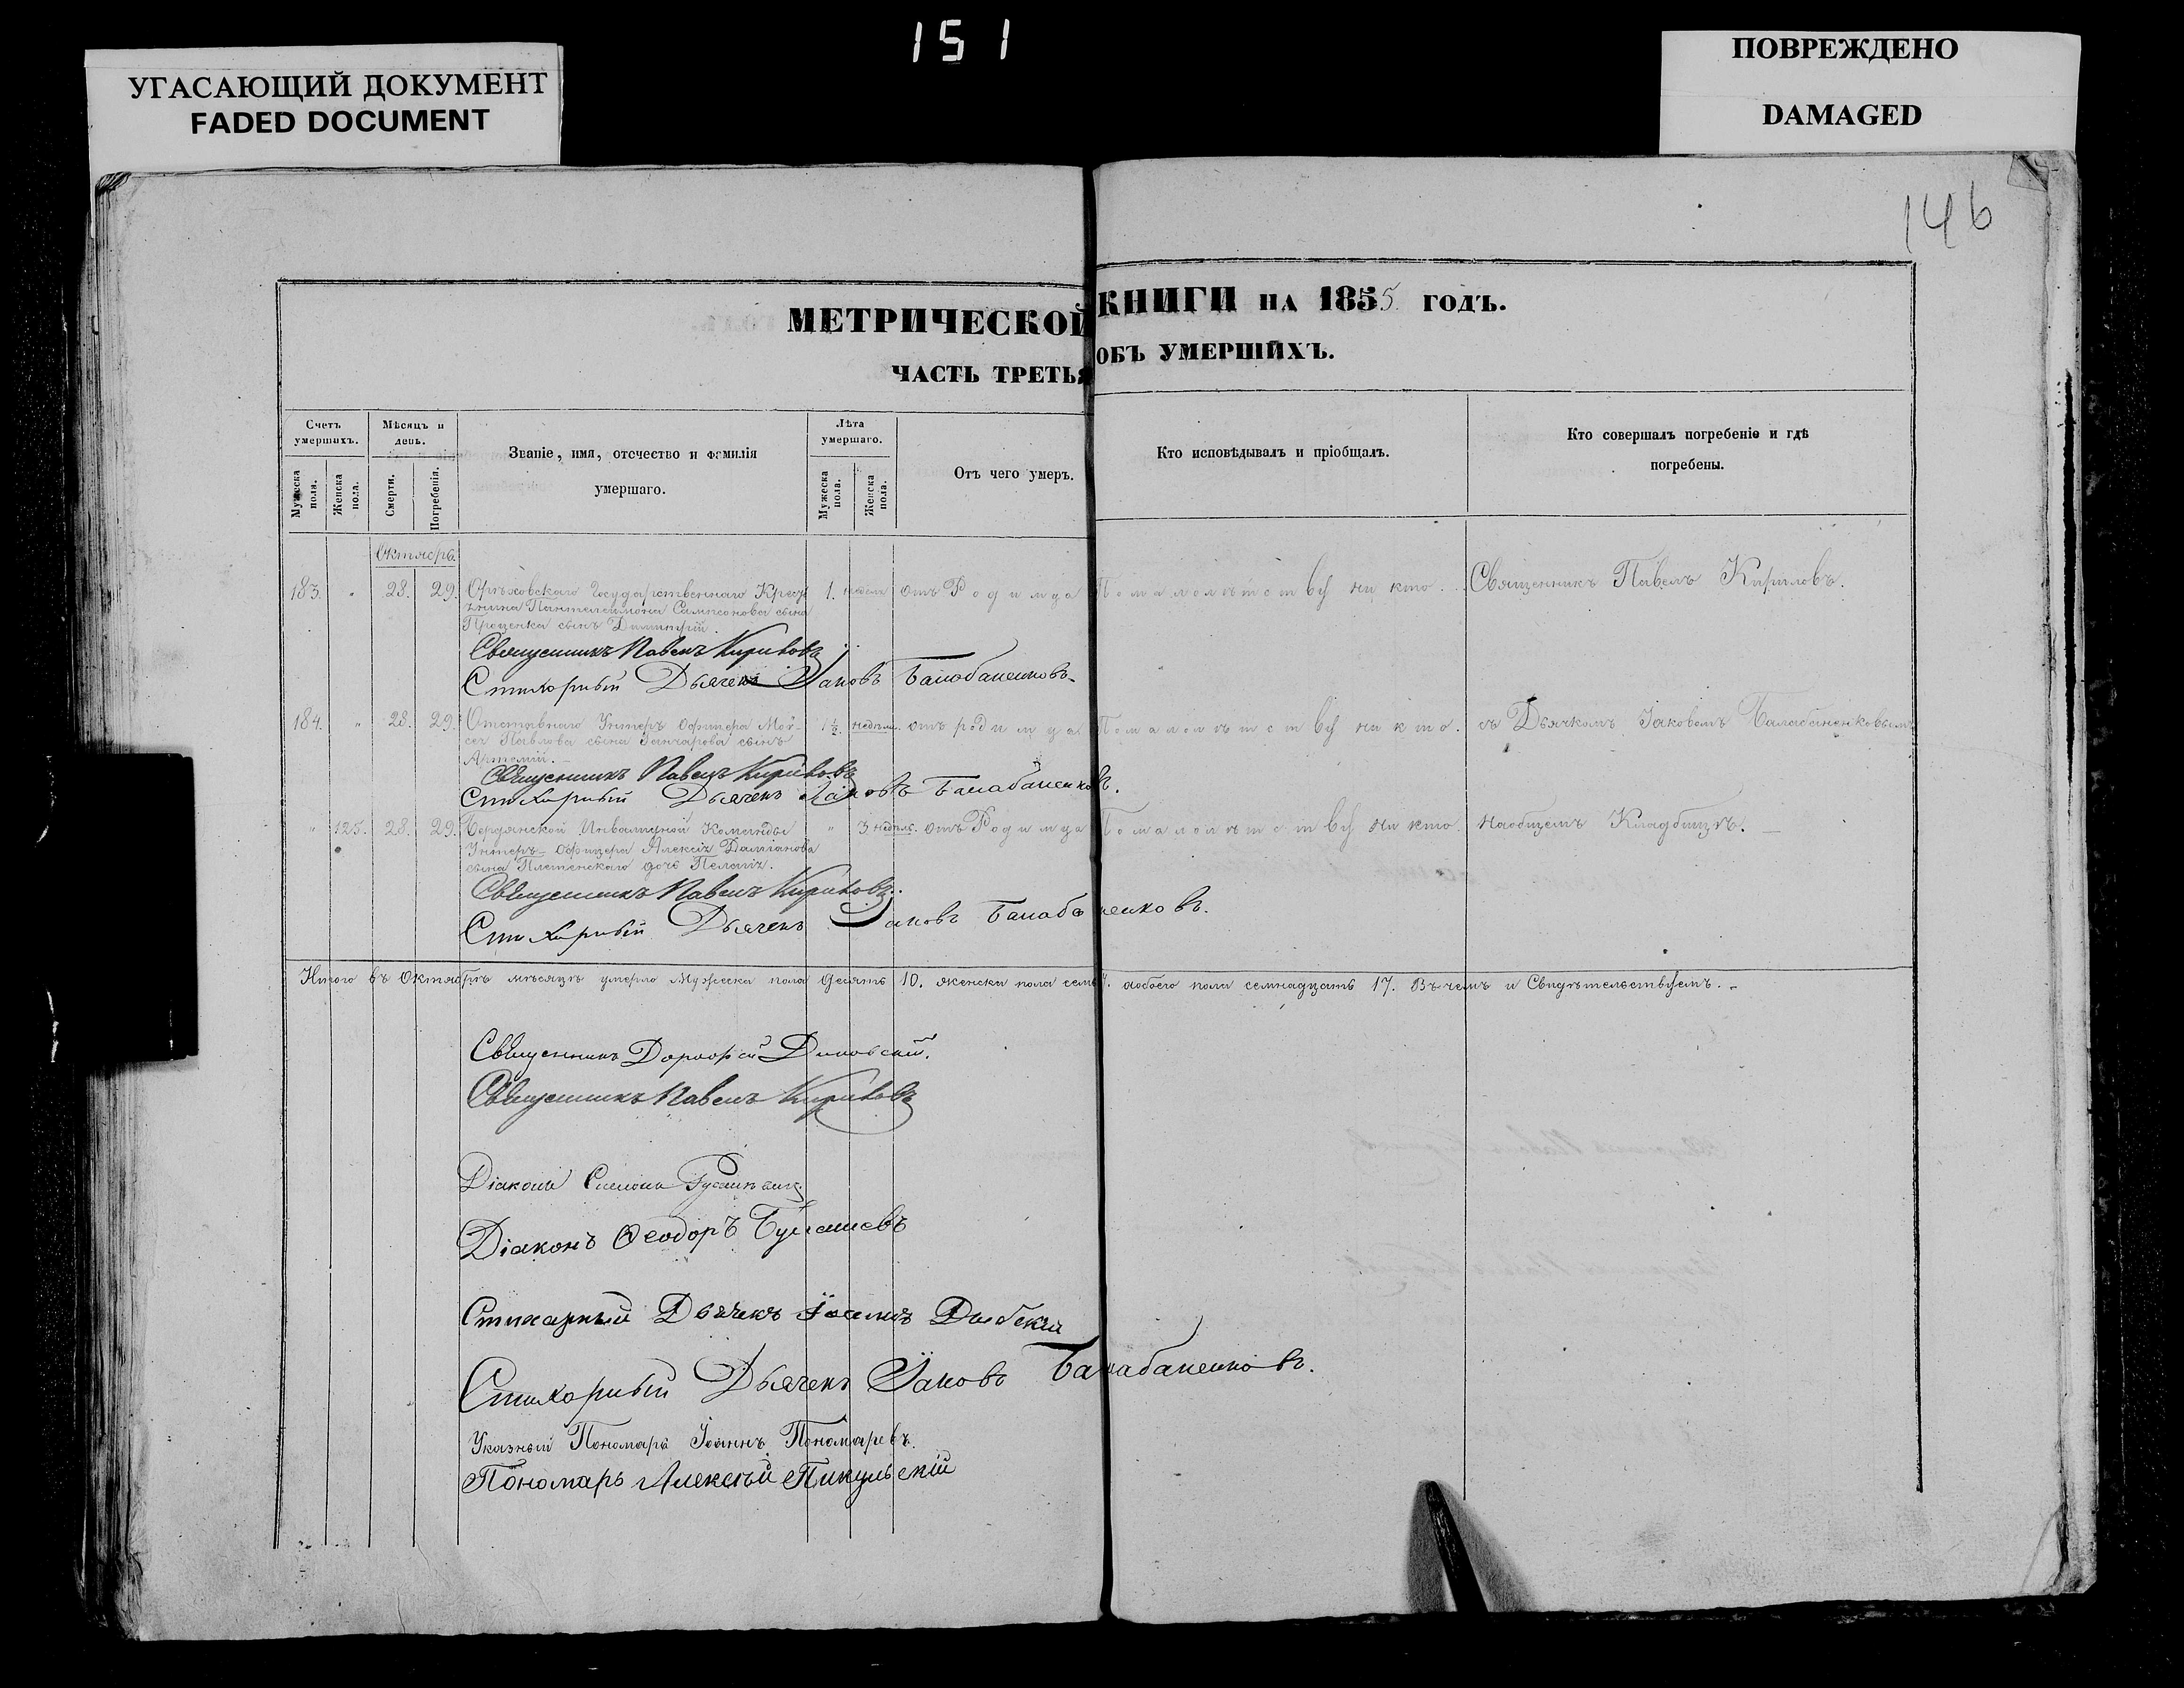 151
УГАСАЮЩИЙ ДОКУМЕНТ
FADED DOCUMENT
ПОВРЕЖДЕНО
DAMAGED
146
МЕТРИЧЕСКОЙ КНИГИ НА 1855 ГОДЪ.
ЧАСТЬ ТРЕТЬЯ ОБЪ УМЕРШИХЪ.
Счетъ умершихъ.
Мужеска пола.
Женска пола.
Мѣсяцъ и день.
Смерти.
Погребенія.
Званіе, имя, отсчество и фамилія
умершаго.
Лѣта умершаго.
Мужеска пола.
Женска пола.
Отъ чего умеръ.
Кто исповѣдывалъ и пріобщалъ.
Кто совершалъ погребеніе и гдѣ
погребены.
Октябрь
183. " 28. 29. Орѣховскаго Государственнаго Крестья 1. недѣл. отъ Родимца По малолѣтству ни кто. Священникъ Павелъ Кириловъ.
янина Пантелеимона Сампсонова сына
Проценка сынъ Димитрій.
Священникъ Павелъ Кириловъ
Стихарный Дьячекъ Іаковъ Балабаненковъ.
184. " 28. 29. Отставнаго Унтеръ Офицера Мой- 1½ недѣли. отъ родимца По малолѣтству ни кто. съ Дьячкомъ Іаковомъ Балабаненковымъ
сея Павлова сына Ганчарова сынъ
Артемій.
Священникъ Павелъ Кириловъ
Стихарный Дьячекъ Іаковъ Балабаненковъ.
" 125. 28. 29. Бердянской Инвалидной Команды " 3 недѣль. отъ Родимца По малолѣтству ни кто. на общемъ Кладбищѣ.
Унтеръ-Офицера Алексія Даміанова
сына Племенскаго дочь Пелагія.
Священникъ Павелъ Кириловъ.
Стихарный Дьячекъ Іаковъ Балабаненковъ.
Итого въ Октябрѣ мѣсяцѣ умерло Мужеска пола десять 10. женска пола семь 7. а обоего пола семнадцать 17. Въ чемъ и Свидѣтельствуемъ.
Священникъ Дороѳей
Священникъ Павелъ Кириловъ
Діаконъ Симеонъ
Діаконъ Ѳеодоръ
Стихарный Дьячекъ
Стихарный Дьячекъ Іаковъ Балабаненковъ.
Указный Пономарь Іоаннъ Пономаревъ.
Пономарь Алексѣй Пикульскій